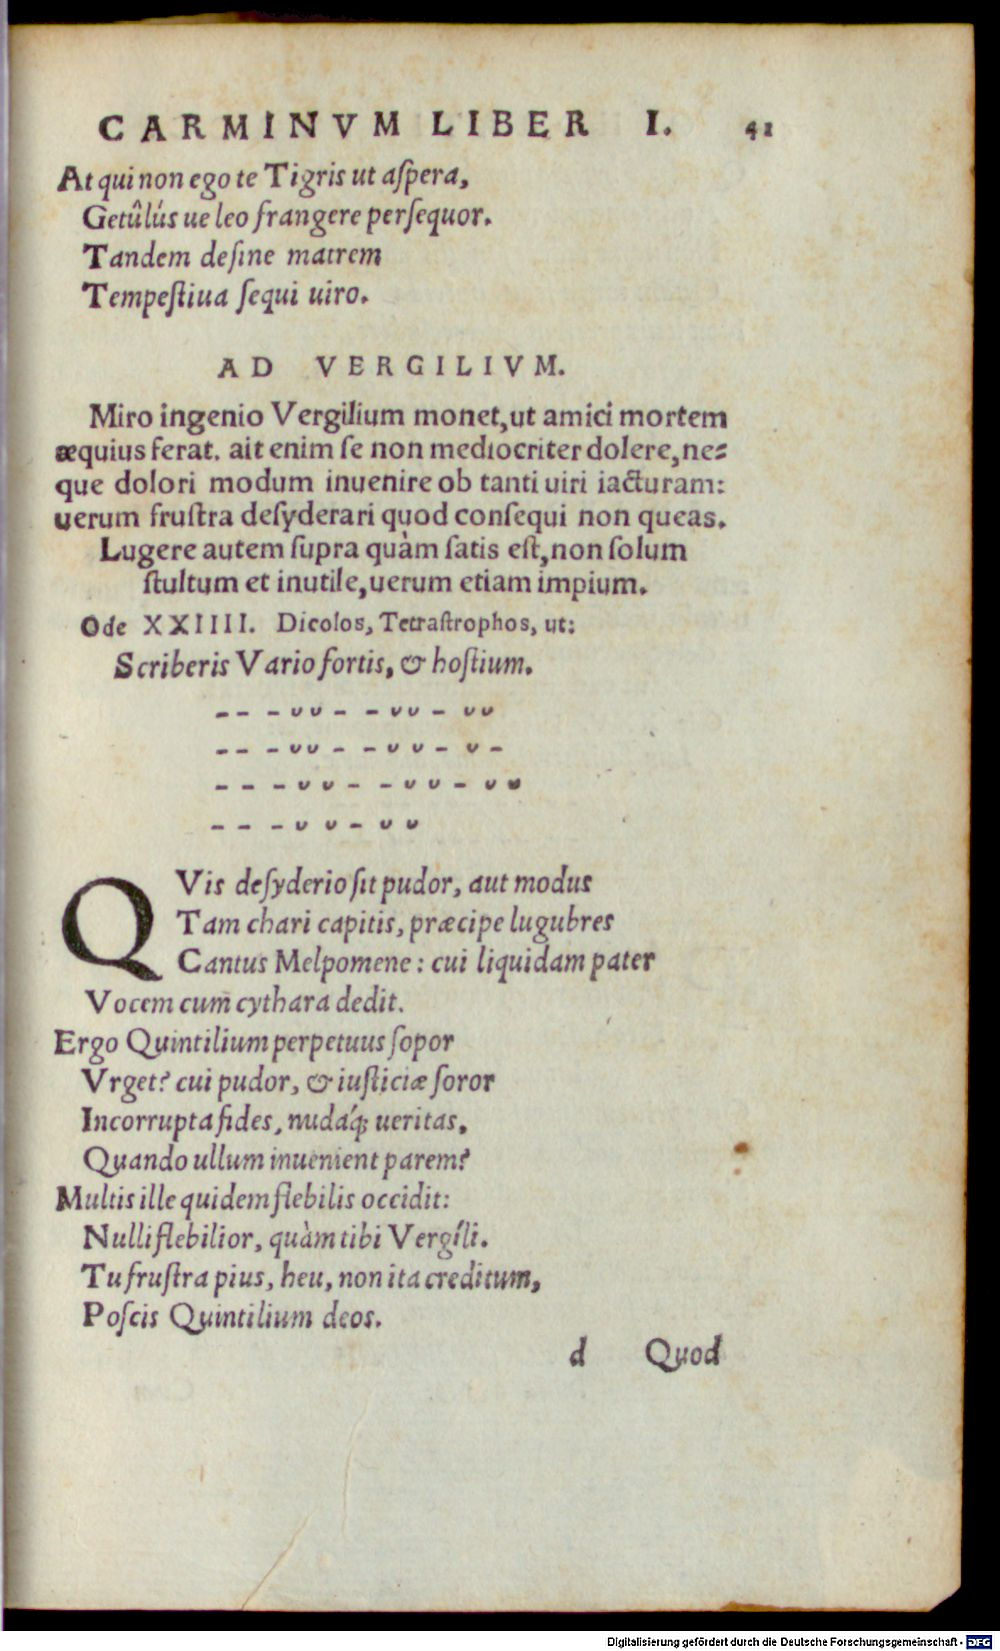 CARMINVM LIBER I. 41
At qui non ego te Tigris ut aſpera,
Getûlús ue leo frangere perſequor.
Tandem deſine matrem
Tempeſtiua ſequi uiro.
AD VERGILIVM.
Miro ingenio Vergilium monet, ut amici mortem
æquius ferat. ait enim ſe non mediocriter dolere, ne=
que dolori modum inuenire ob tanti uiri iacturam:
uerum fruſtra deſyderari quod conſequi non queas.
Lugere autem ſupra quàm ſatis eſt, non ſolum
ſtultum et inutile, uerum etiam impium.
Ode XXIIII. Dicolos, Tetraſtrophos, ut:
Scriberis Vario fortis, & hoſtium.
– – – ᴗ ᴗ – – ᴗ ᴗ – ᴗ ᴗ
– – – ᴗ ᴗ – – ᴗ ᴗ – ᴗ –
– – – ᴗ ᴗ – – ᴗ ᴗ – ᴗ ᴗ
– – – ᴗ ᴗ – ᴗ ᴗ
QVis deſyderio ſit pudor, aut modus
Tam chari capitis, præcipe lugubres
Cantus Melpomene: cui liquidam pater
Vocem cum cythara dedit.
Ergo Quintilium perpetuus ſopor
Vrget? cui pudor, & iuſticiæ ſoror
Incorrupta fides, nudáq; ueritas,
Quando ullum inuenient parem?
Multis ille quidem flebilis occidit:
Nulli flebilior, quàm tibi Vergíli.
Tu fruſtra pius, heu, non ita creditum,
Poſcis Quintilium deos.
d Quod
Digitalisierung gefördert durch die Deutsche Forschungsgemeinschaft - DFG